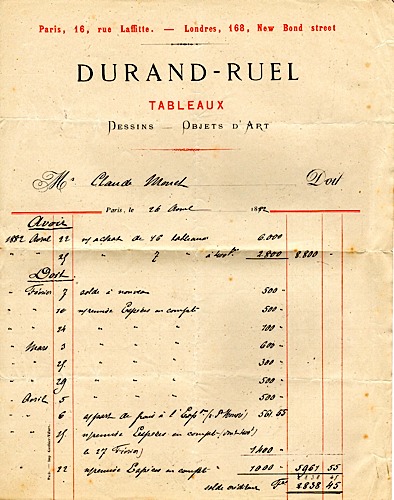 Paris, 16, rue Laffitte. — Londres, 168, New Bond street
DURAND-RUEL
TABLEAUX
DESSINS — OBJETS D'ART
Mr Claude Monet Doit
Paris, le 26 Avril 1882
Avoir
1882 Avril 22 achat de 16 tableaux 6.000
" " 25 " " 7 " 2.800 8.800 -
Doit
" Février 7 solde à nouveau 500 -
" " 10 Espèces en compte 500 -
" " 24 " " " 100 -
" Mars 3 " " " 600 -
" " 25 " " " 300 -
" " 29 " " " 500 -
" Avril 5 " " " 500 -
" " 6 de frais à l'Exp 561 65
" " 25 Espèces en compte
le 27 Février) 1400 -
" " 22 Espèces en compte 1000 - 5961 55
solde créditeur 2838 45